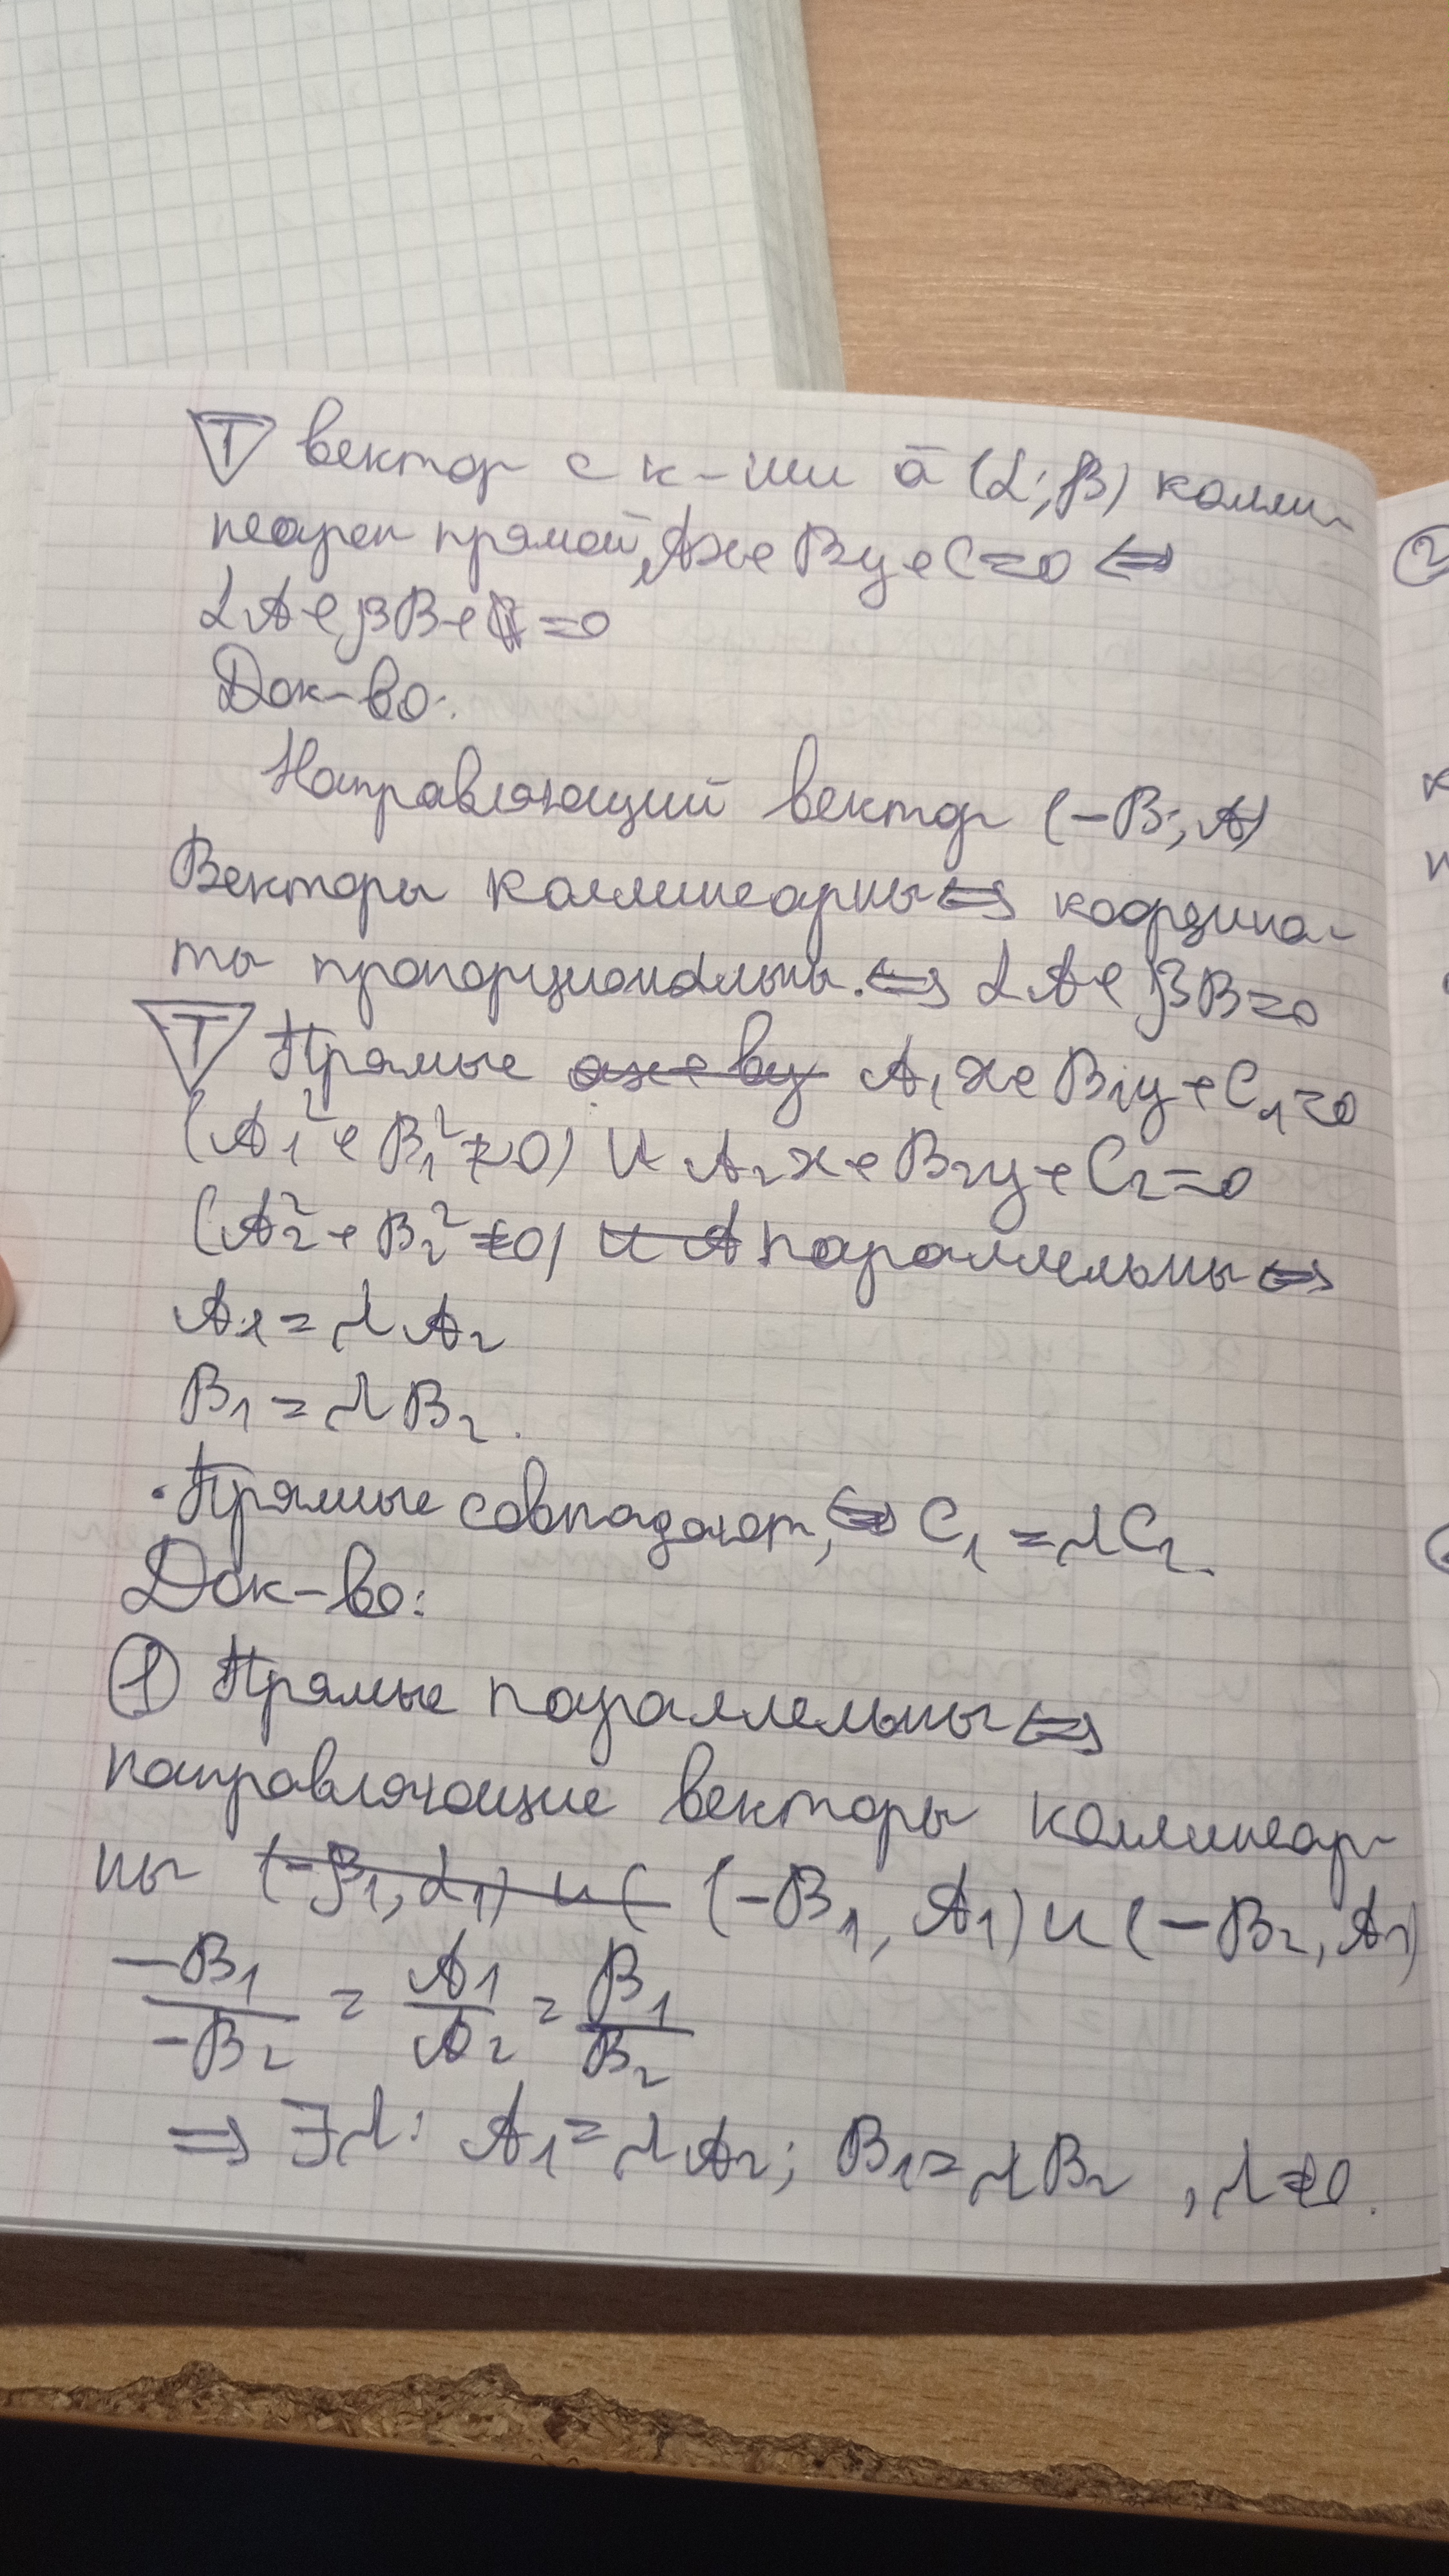 Т вектор с к-ми ā (α; β) колли-
неарен прямой, Ax+By+C=0 ⇔
αA+βB+=0
Док-во:
Направляющий вектор (-B; A)
Векторы коллинеарны ⇔ координа-
ты пропорциональны. ⇔ αA+βB=0
Т Прямые ax+by A₁x+B₁y+C₁=0
(A₁²+B₁²≠0) и A₂x+B₂y+C₂=0
(A₂²+B₂²≠0) и A параллельны ⇔
A₁=λA₂
B₁=λB₂.
·Прямые совпадают, ⇔ C₁=λC₂.
Док-во:
① Прямые параллельны ⇔
направляющие векторы коллинеар-
ны (-β₁, α₁) и ( (-B₁, A₁) и (-B₂, A₂)
-B₁/-B₂ = A₁/A₂ = B₁/B₂
⇒ ∃λ: A₁=λA₂; B₁=λB₂, λ≠0.
2